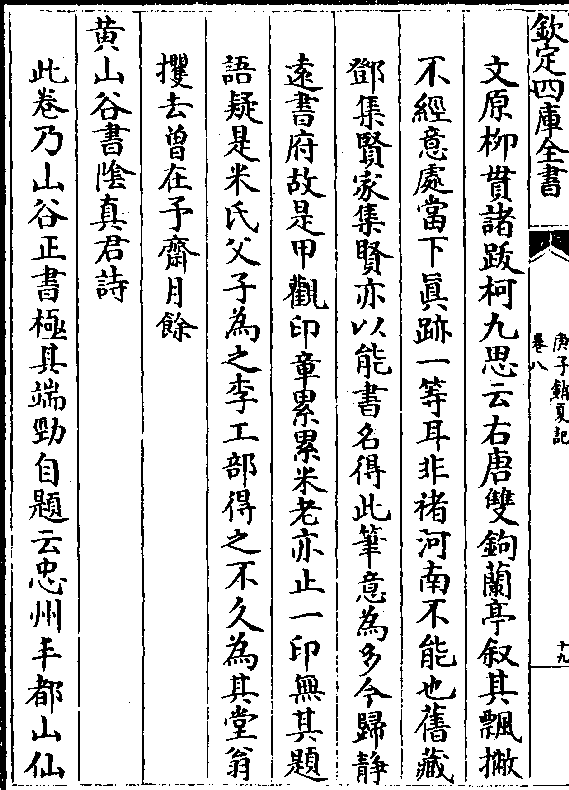 欽定四庫全書
庚子銷夏記
卷八
十九
文原柳貫諸跋柯九思云右唐雙鉤蘭亭叙其飄撇
不經意處當下真跡一等耳非褚河南不能也舊藏
鄧集賢家集賢亦以能書名得此筆意為多今歸静
遠書府故是甲觀印章累累米老亦止一印無其題
語疑是米氏父子為之李工部得之不久為其堂翁
攫去曾在予齋月餘
黄山谷書陰真君詩
此卷乃山谷正書極其端勁自題云忠州平都山仙